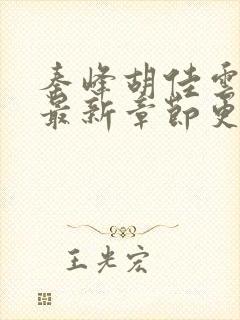 秦峰胡佳雲
最新章節更
王光宏